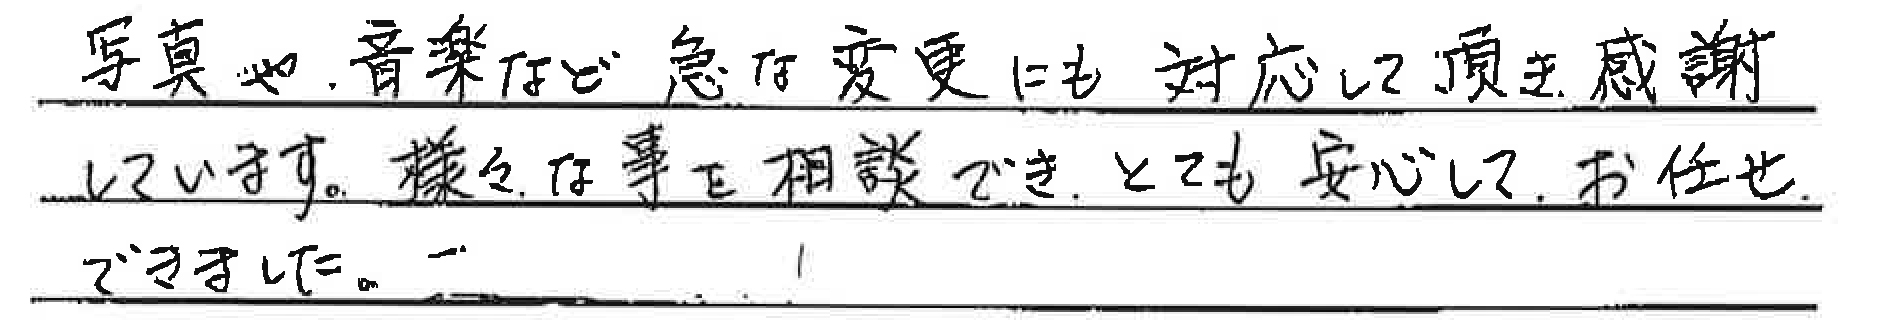 写真や音楽など急な変更にも対応して頂き感謝
しています。様々な事を相談でき、とても安心して、お任せ
できました。